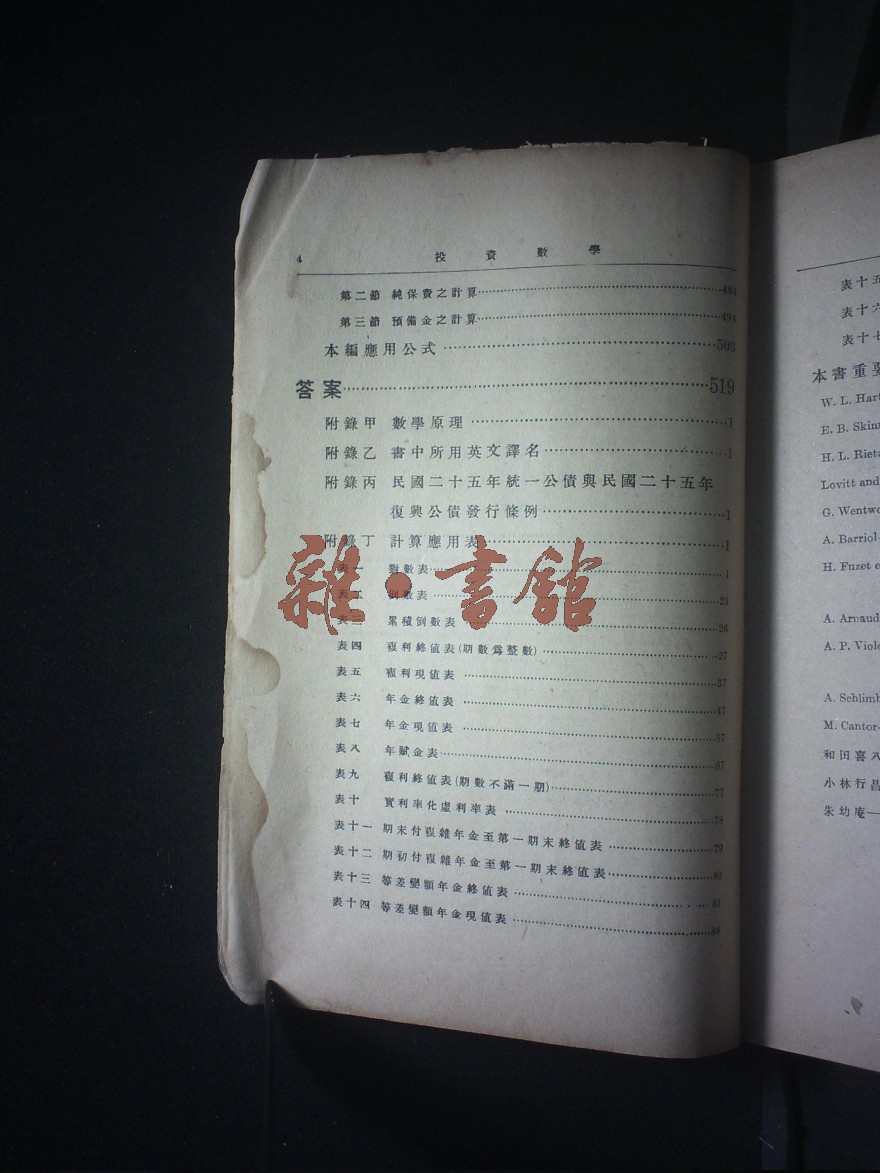 4 投資數學
第二節 純保費之計算……484
第三節 預備金之計算……494
本編應用公式……503
答案……519
附錄甲 數學原理……1
附錄乙 書中所用英文譯名……1
附錄丙 民國二十五年統一公債與民國二十五年
復興公債發行條例……1
附錄丁 計算應用表……1
表一 對數表……1
表二 倒數表……25
表三 累積倒數表……26
表四 複利終值表(期數爲整數)……27
表五 複利現值表……37
表六 年金終值表……47
表七 年金現值表……57
表八 年賦金表……67
表九 複利終值表(期數不滿一期)……77
表十 實利率化虛利率表……78
表十一 期末付複雜年金至第一期末終值表……79
表十二 期初付複雜年金至第一期末終值表……80
表十三 等差變額年金終值表……81
表十四 等差變額年金現值表……88
雜·書館
表十五
表十六
表十七
本書重要
W. L. Hart
E. B. Skinn
H. L. Rieta
Lovitt and
G. Wentwo
A. Barriol
H. Fuzet e
A. Arnaud
A. P. Viole
A. Schlimb
M. Cantor
和田喜八
小林行昌
朱幼庵